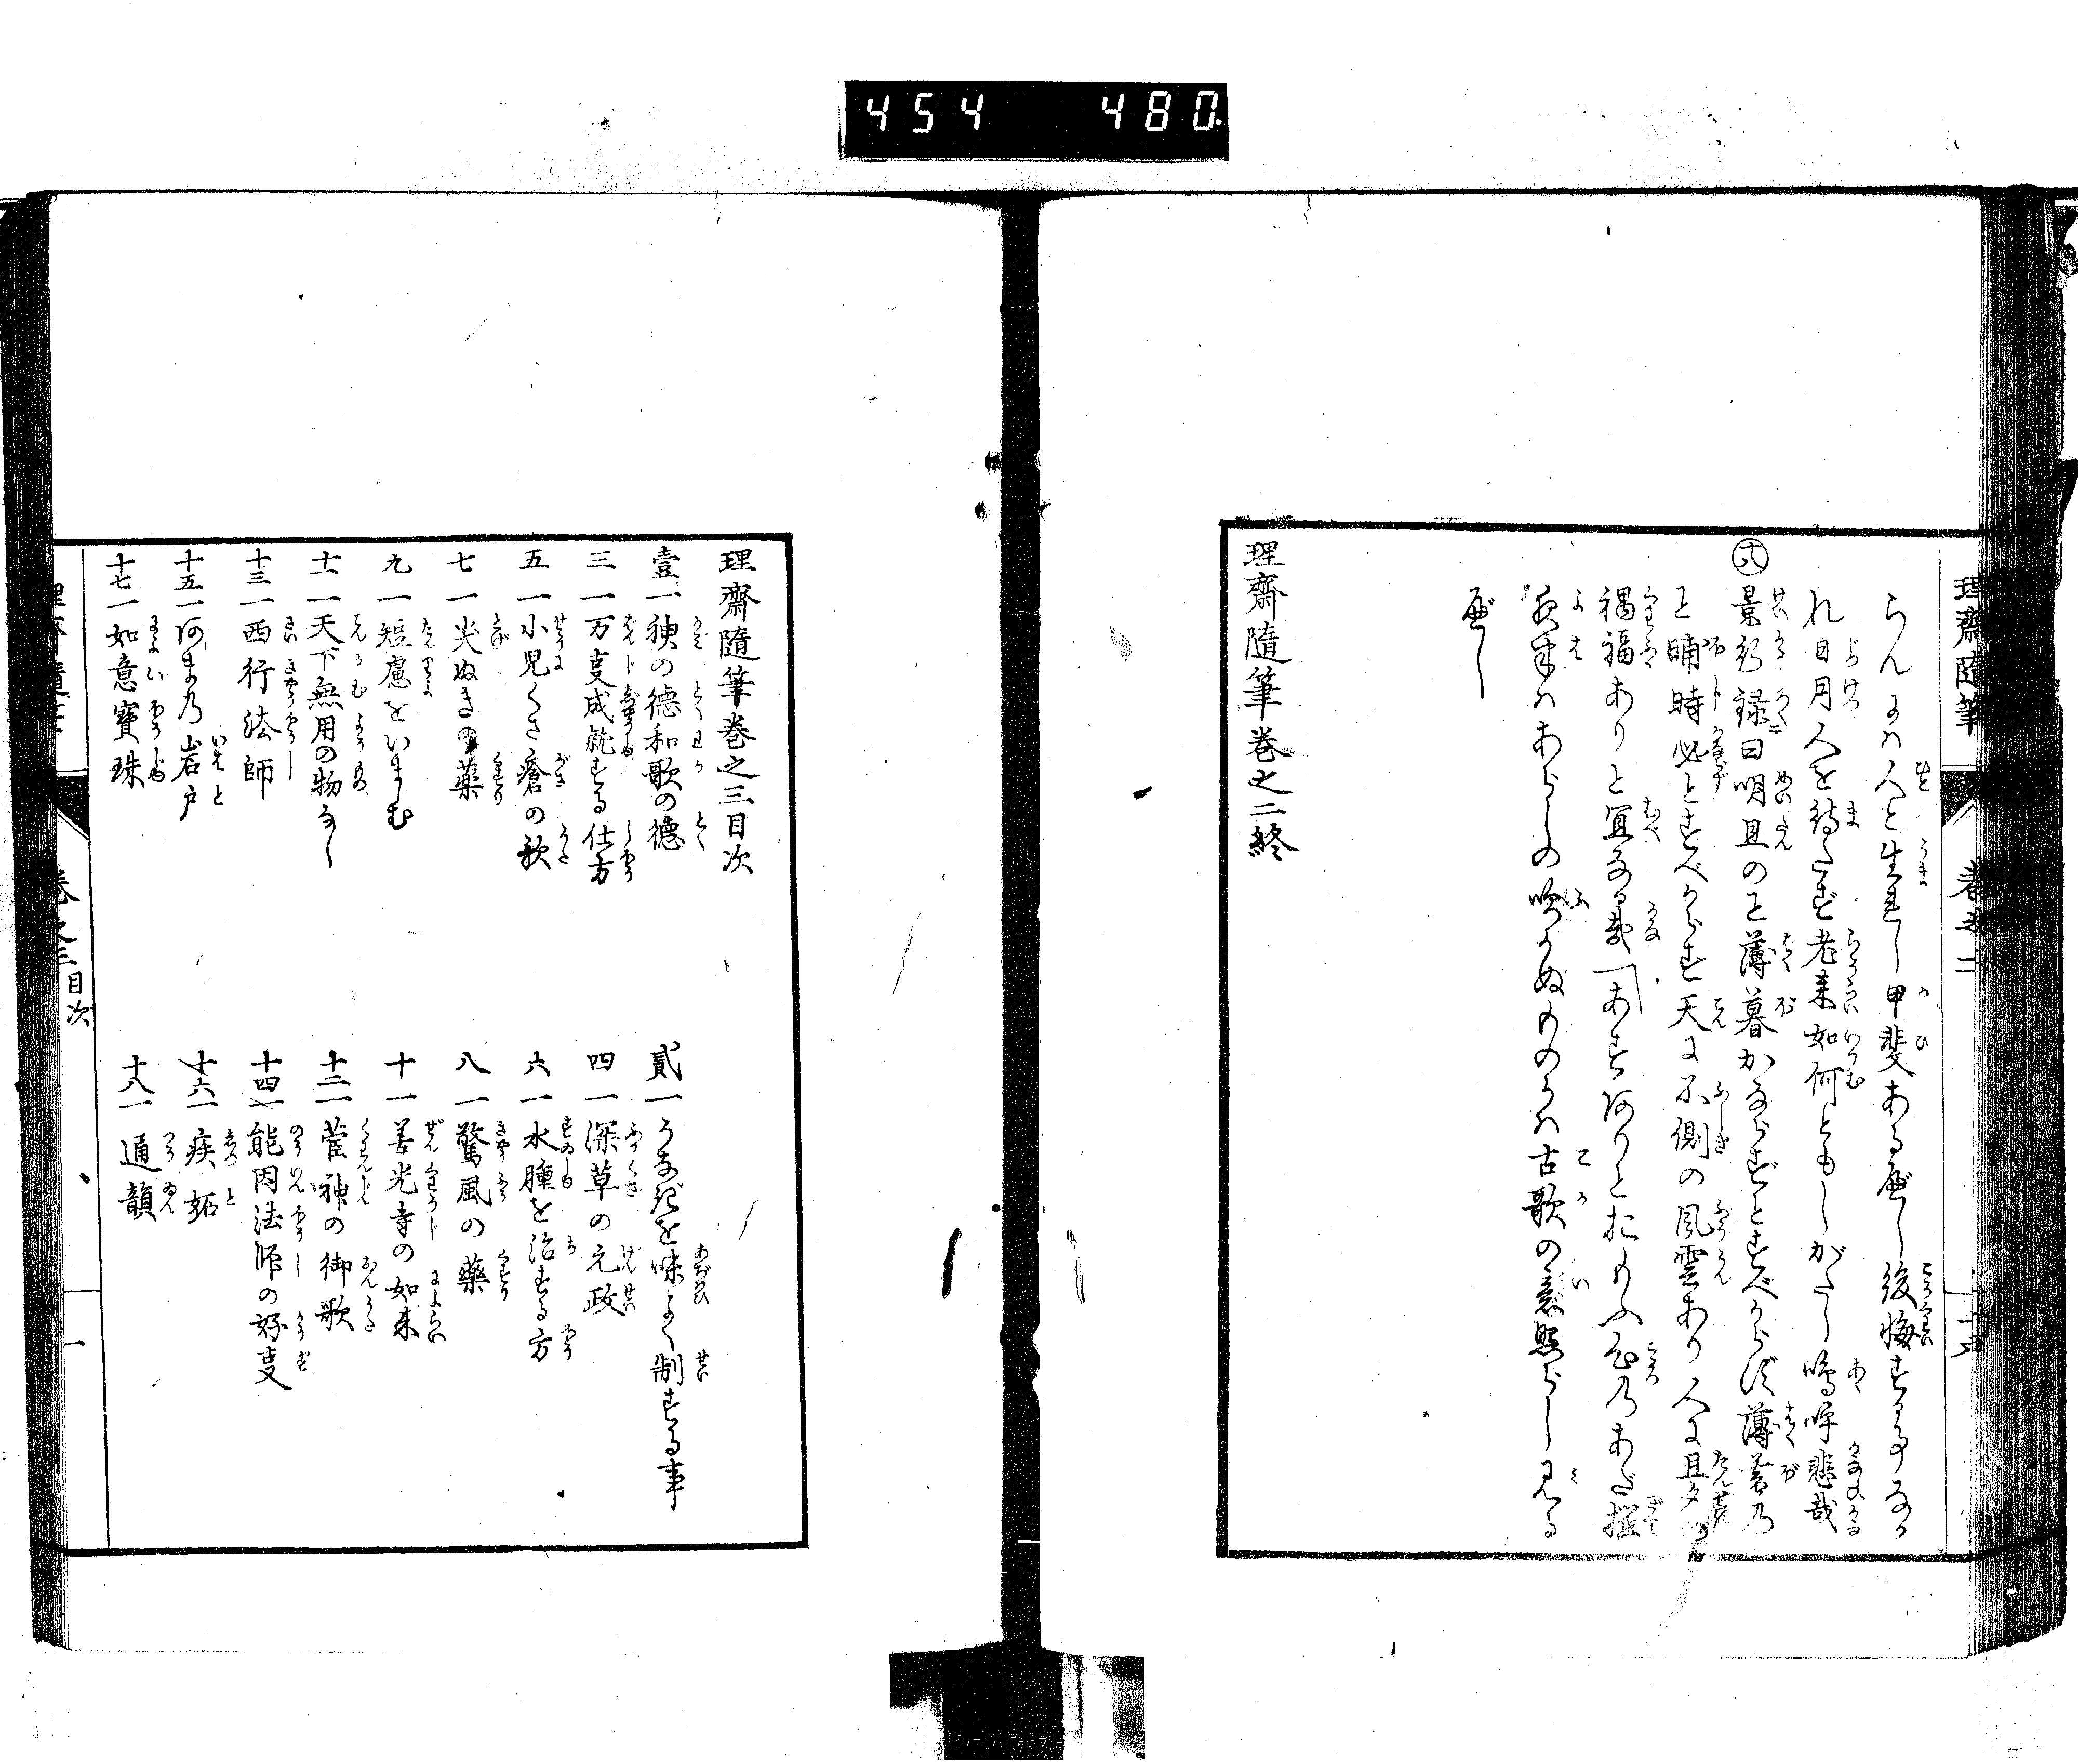 454 480
理齋隨筆
卷之二
らんよりハ人と生れし甲斐ある
後悔する事なか
れ日月人を待たず老来如何ともしがたし嗚呼悲哉
十八
景行録曰明旦のこと薄暮かならずとすべからず薄暮の
こと晡時必とすべからず天に不測の風雲あり人に旦夕の
禍福ありと宜なる哉「あす阿りとおもふ心のあだ桜
夜半ハあらしの吹かぬものかハ古歌の意思らしみる
べし
理齋隨筆卷之二終
理齋隨筆卷之三目次
壹一狹の德和歌の德
貳一うなぎを味よく制する事
三一万事成就する仕方
四一深草の元政
五一小児くさ瘡の歌
六一水腫を治する方
七一尖ぬきの藥
八一驚風の藥
九一短慮をいましむ
十一善光寺の如来
十一一天下無用の物なし
十二一菅神の御歌
十三一西行法師
十四一能因法師の好事
十五一阿まの岩戸
十六一疾妬
十七一如意寶珠
十八一通韻
卷之三目次
一